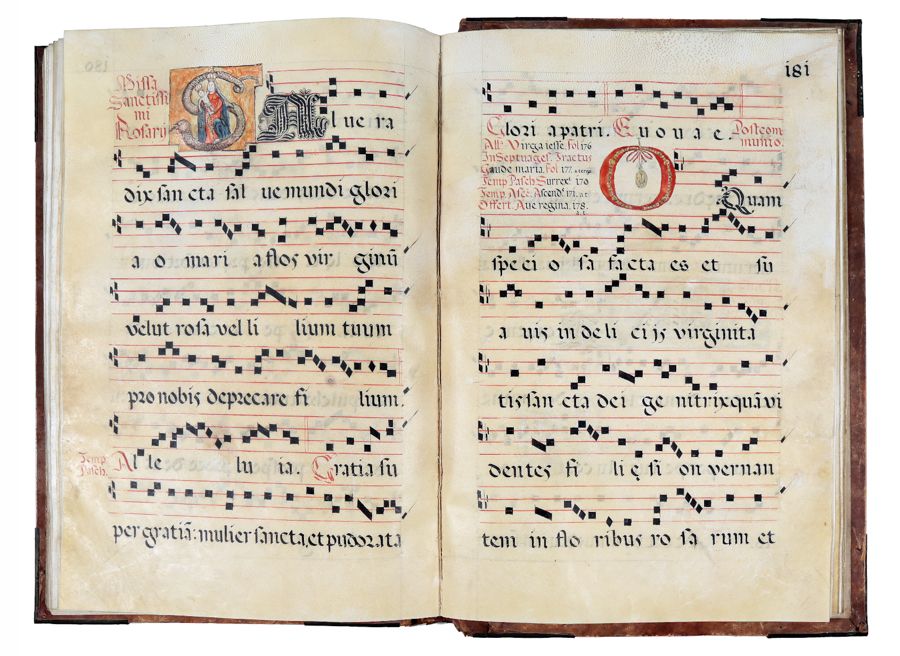 Missa
Sanctissi
mi
Rosarij
SAluera
dix sancta salue mundi glori
a o maria flos virginũ
velut rosa vel lilium tuum
pro nobis deprecare filium.
Temp.
Pasch.
Alleluia. Gratia su
per gratiã: mulier sancta, et pudorata
181
Gloria patri. Euouae. Postcom
munio.
All. Virga iesse. fol 176
In Septuages. Tractus
Gaude maria. fol 177.
Temp Pasch Surrex. 170
Temp. Asce. Ascend. 171.
Offert. Aue regina. 178.
O Quam
speciosa facta es et su
auis in delicijs virginita
tis sancta dei genitrix quã vi
dentes filię sion vernan
tem in floribus rosarum et